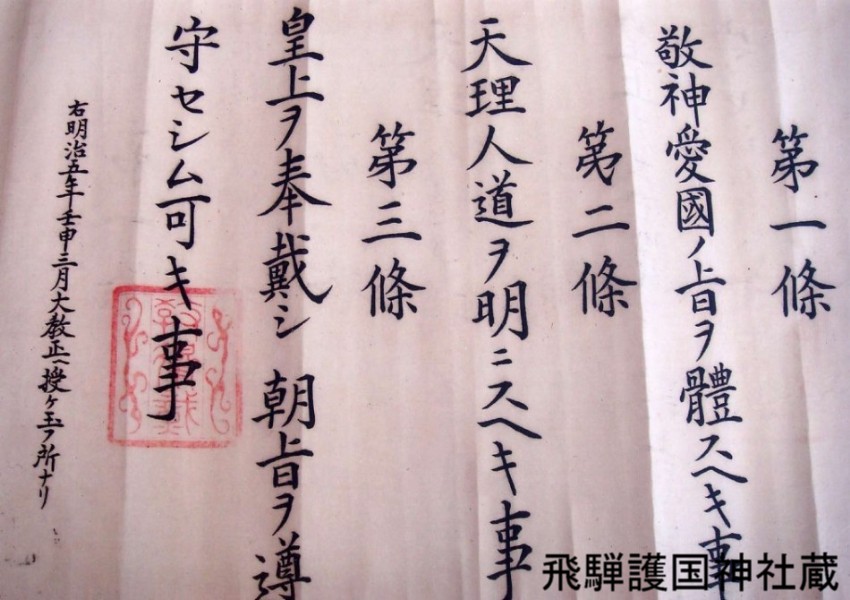 第一條
敬神愛國ノ旨ヲ體スヘキ事
第二條
天理人道ヲ明ニスヘキ事
第三條
皇上ヲ奉戴シ 朝旨ヲ遵
守セシム可キ事
右明治五年壬申三月大教正ヘ授ケ玉フ所ナリ
飛騨護国神社蔵